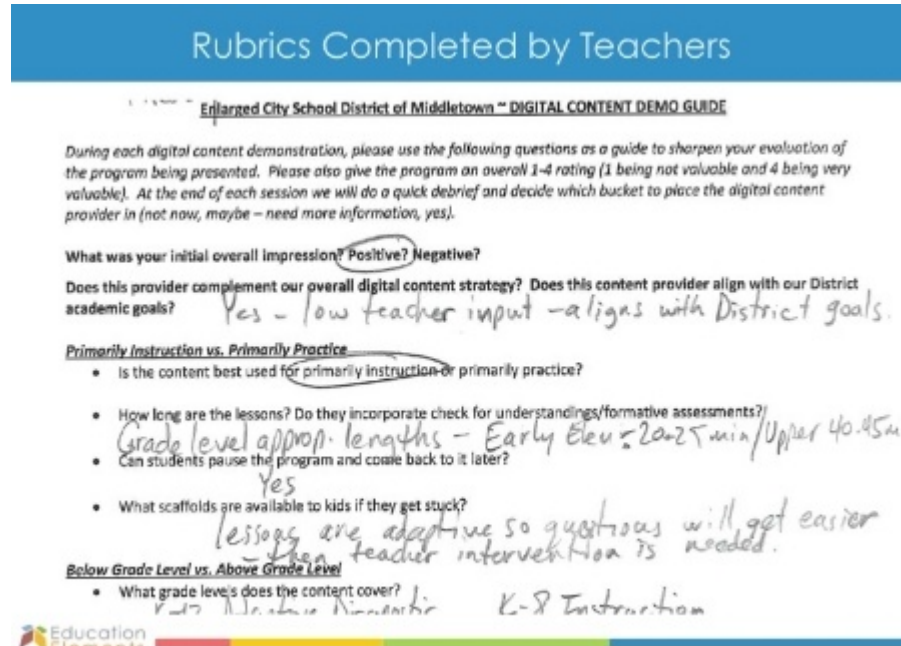 Rubrics Completed by Teachers
Enlarged City School District of Middletown ~ DIGITAL CONTENT DEMO GUIDE
During each digital content demonstration, please use the following questions as a guide to sharpen your evaluation of
the program being presented. Please also give the program an overall 1-4 rating (1 being not valuable and 4 being very
valuable). At the end of each session we will do a quick debrief and decide which bucket to place the digital content
provider in (not now, maybe – need more information, yes).
What was your initial overall impression? Positive? Negative?
Does this provider complement our overall digital content strategy? Does this content provider align with our District
academic goals?
Yes - low teacher input - aligns with District goals.
Primarily Instruction vs. Primarily Practice
• Is the content best used for primarily instruction or primarily practice?
• How long are the lessons? Do they incorporate check for understandings/formative assessments?
Grade level approp. lengths - Early Elem = 20-25 min / Upper 40-45
• Can students pause the program and come back to it later?
Yes
• What scaffolds are available to kids if they get stuck?
lessons are adaptive so questions will get easier
- then teacher intervention is needed.
Below Grade Level vs. Above Grade Level
• What grade levels does the content cover?
K-12 Adaptive Diagnostic K-8 Instruction
Education
Elements